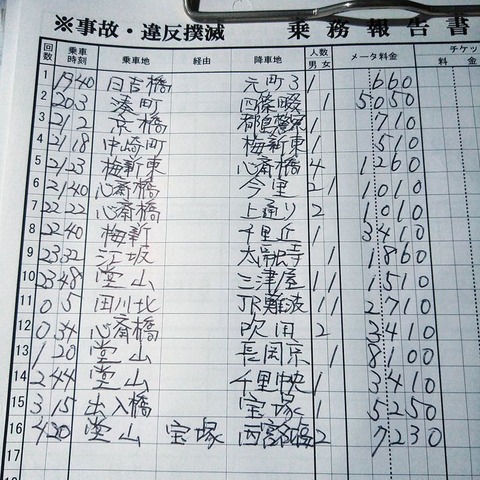 ※事故・違反撲滅 乗務報告書
回数 乗車時刻 乗車地 経由 降車地 人数 男 女 メータ料金 チケッ 料金
1 1940 日吉橋 元町3 1 660
2 203 湊町 四篠畷 1 5050
3 212 京橋 都島 1 710
4 2118 中崎町 梅新東 1 510
5 2123 梅新東 心斎橋 4 1260
6 2140 心斎橋 今里 2 1 1010
7 2222 心斎橋 上通り 2 1010
8 2240 梅新 千里丘 1 3410
9 2332 江坂 大融寺 1 1860
10 2348 堂山 三津屋 1 1 1510
11 0 5 田川北 JR難波 1 1 2710
12 034 心斎橋 吹田 2 3410
13 120 堂山 長岡京 1 8100
14 244 堂山 千里中央 1 3410
15 315 出入橋 宝塚 1 5250
16 420 堂山 宝塚 西宮 2 7230
17